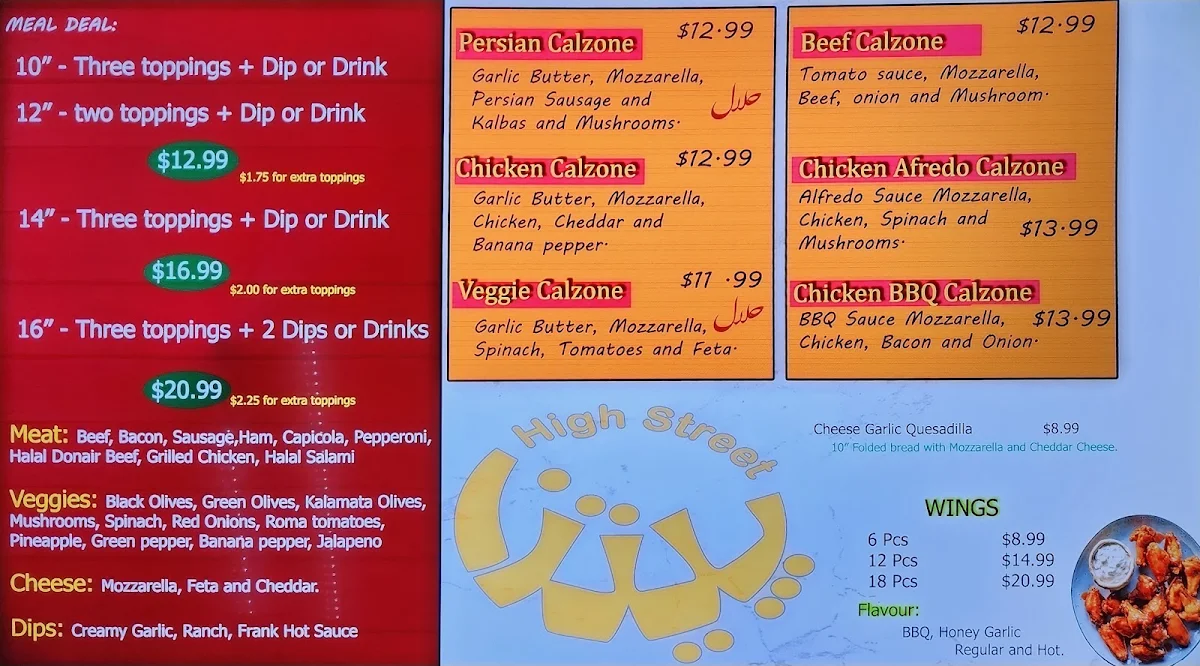 MEAL DEAL:
10" - Three toppings + Dip or Drink
12" - two toppings + Dip or Drink
$12.99
$1.75 for extra toppings
14" - Three toppings + Dip or Drink
$16.99
$2.00 for extra toppings
16" - Three toppings + 2 Dips or Drinks
$20.99
$2.25 for extra toppings
Meat: Beef, Bacon, Sausage,Ham, Capicola, Pepperoni,
Halal Donair Beef, Grilled Chicken, Halal Salami
Veggies: Black Olives, Green Olives, Kalamata Olives,
Mushrooms, Spinach, Red Onions, Roma tomatoes,
Pineapple, Green pepper, Banana pepper, Jalapeno
Cheese: Mozzarella, Feta and Cheddar.
Dips: Creamy Garlic, Ranch, Frank Hot Sauce
Persian Calzone $12.99
Garlic Butter, Mozzarella,
Persian Sausage and حلال
Kalbas and Mushrooms.
Chicken Calzone $12.99
Garlic Butter, Mozzarella,
Chicken, Cheddar and
Banana pepper.
Veggie Calzone $11 .99
Garlic Butter, Mozzarella, حلال
Spinach, Tomatoes and Feta.
Beef Calzone $12.99
Tomato sauce, Mozzarella,
Beef, onion and Mushroom.
Chicken Afredo Calzone
Alfredo Sauce Mozzarella,
Chicken, Spinach and $13.99
Mushrooms.
Chicken BBQ Calzone
BBQ Sauce Mozzarella, $13.99
Chicken, Bacon and Onion.
High Street
پیتزا
Cheese Garlic Quesadilla $8.99
10" Folded bread with Mozzarella and Cheddar Cheese.
WINGS
6 Pcs $8.99
12 Pcs $14.99
18 Pcs $20.99
Flavour:
BBQ, Honey Garlic
Regular and Hot.